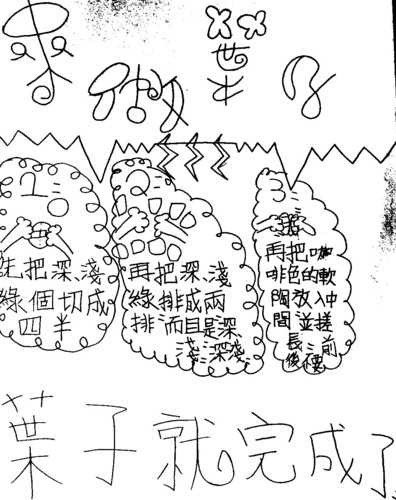 來做葉子
1.
先把深、淺
綠個切成
四半
2.
再把深、淺
綠排成兩
排而且是深
淺、深淺
3.
再把咖
啡色的軟
陶放入中
間並搓
長 前
後
葉子就完成了